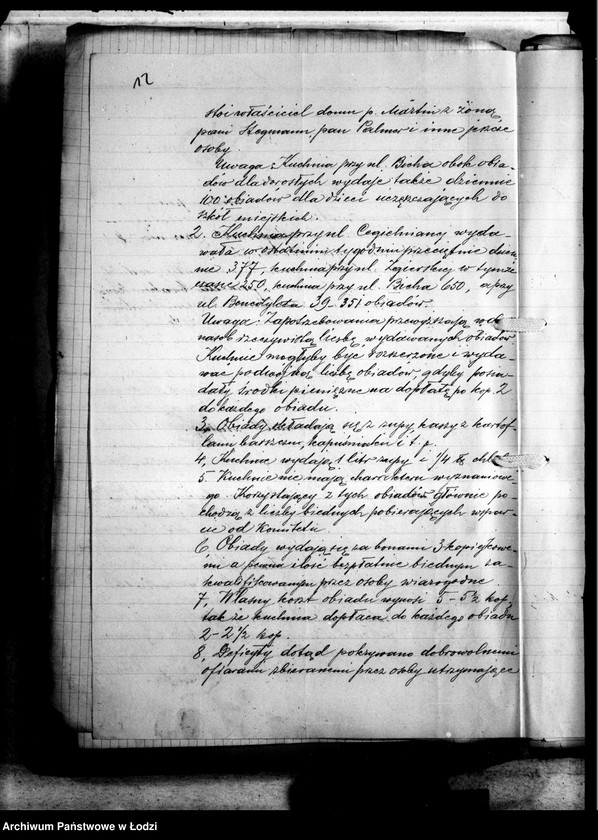 12
stoi właściciel domu p. Martin z żoną
pani Stegmann, pan Palmer i inne jeszcze
osoby.
Uwaga: Kuchnia przy ul. Bocha obok obia-
dów dla dorosłych wydaje także dziennie
100 obiadów dla dzieci uczęszczających do
szkół miejskich.
2. Kuchnia przy ul. Cegielnianej wyda-
wała w ostatnim tygodniu przeciętnie dzien-
nie 377, kuchnia przy ul. Zgierskiej w tymże
czasie 1250, kuchnia przy ul. Bocha 650, a przy
ul. Benedykta 39 - 351 obiadów.
Uwaga: Zapotrzebowania przewyższają
rzeczywistą liczbę wydawanych obiadów
Kuchnie mogłyby być rozszerzone i wyda-
wać podwójną liczbę obiadów, gdyby posia-
dały środki pieniężne na dopłatę po kop. 2
do każdego obiadu.
3. Obiady składają się z zupy, kaszy z kartof-
lami barszczu, kapuśniaku i t. p.
4, Kuchnie wydają 1 litr zupy i 1/4 ft. chleba
5. Kuchnie nie mają charakteru wyznaniowe-
go. Korzystający z tych obiadów głównie po-
chodzą z liczby biednych pobierających wspar-
cie od Komitetu
6, Obiady wydają się za bonami 3 kopiejkowe-
mi a pewna ilość bezpłatnie biednym za-
kwalifikowanym przez osoby wiarogodne
7, Własny koszt obiadu wynosi 5 - 5½ kop.
tak że kuchnia dopłaca do każdego obiadu
2 - 2½ kop.
8, Deficyty dotąd pokrywano dobrowolnemi
ofiarami zbieranemi przez osoby utrzymujące
Archiwum Państwowe w Łodzi